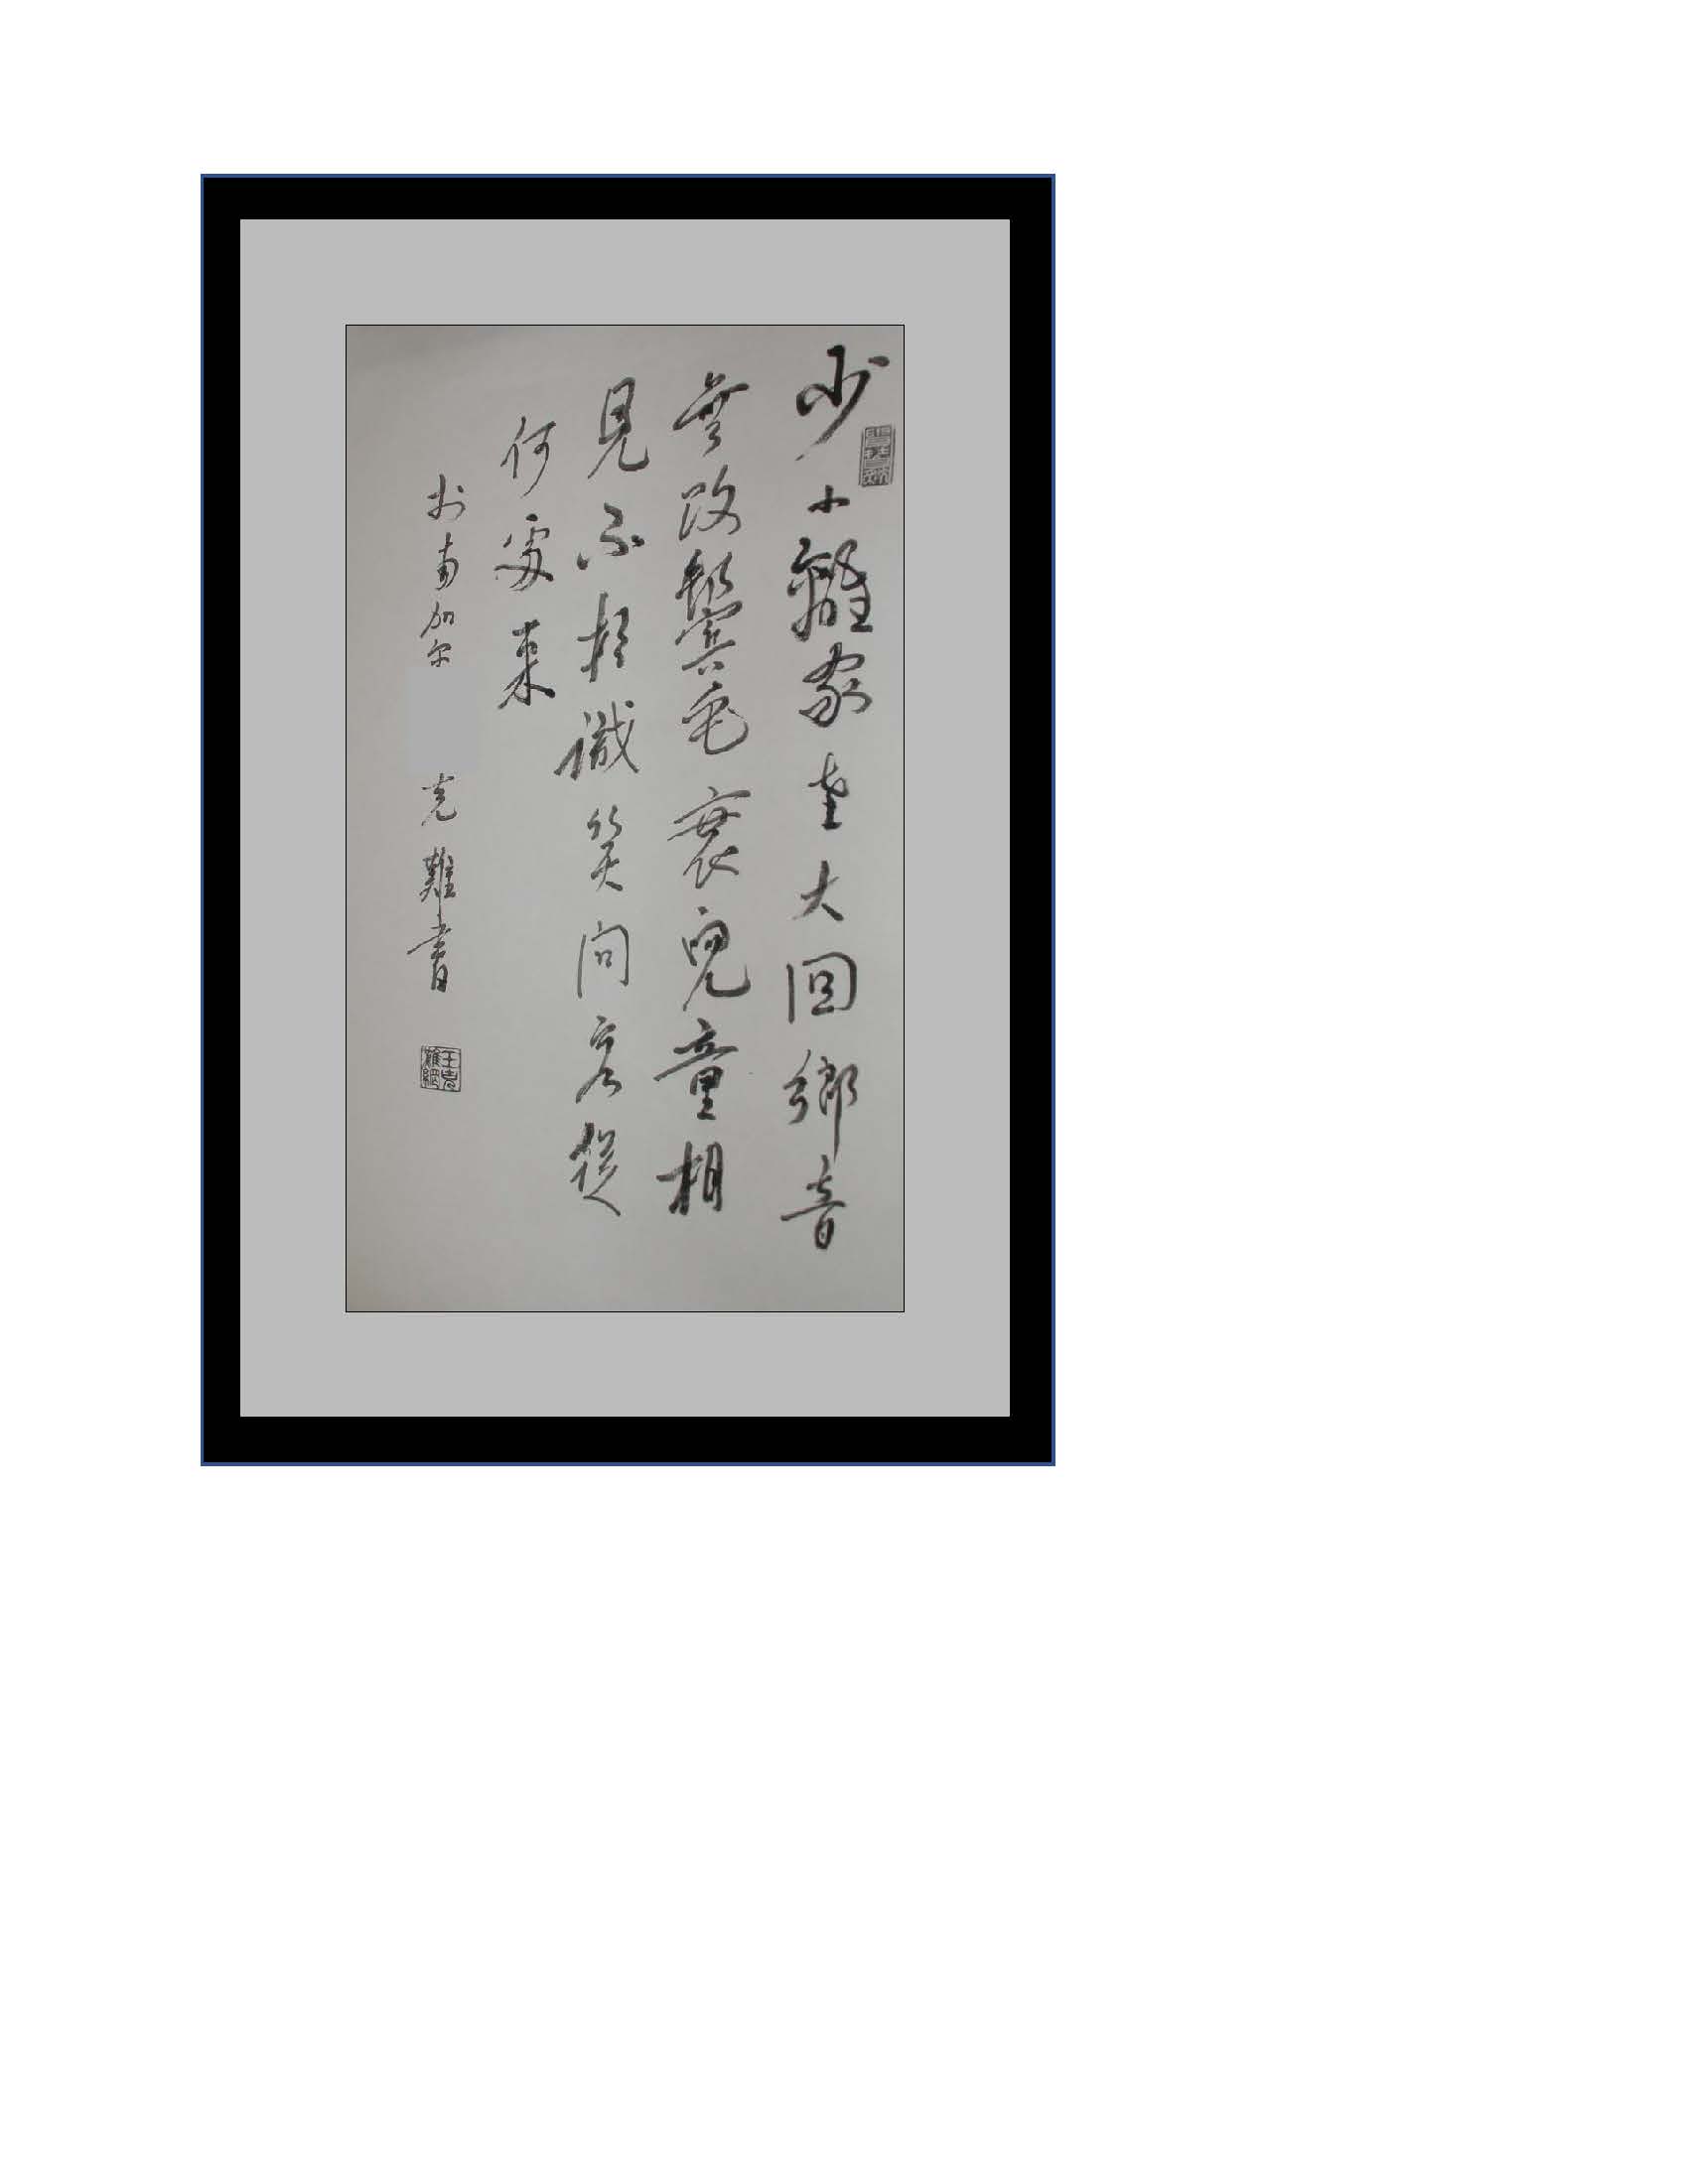 少小離家老大回鄉音
無改鬢毛衰兒童相
見不相識笑問客從
何處來
於南加尔
克難書